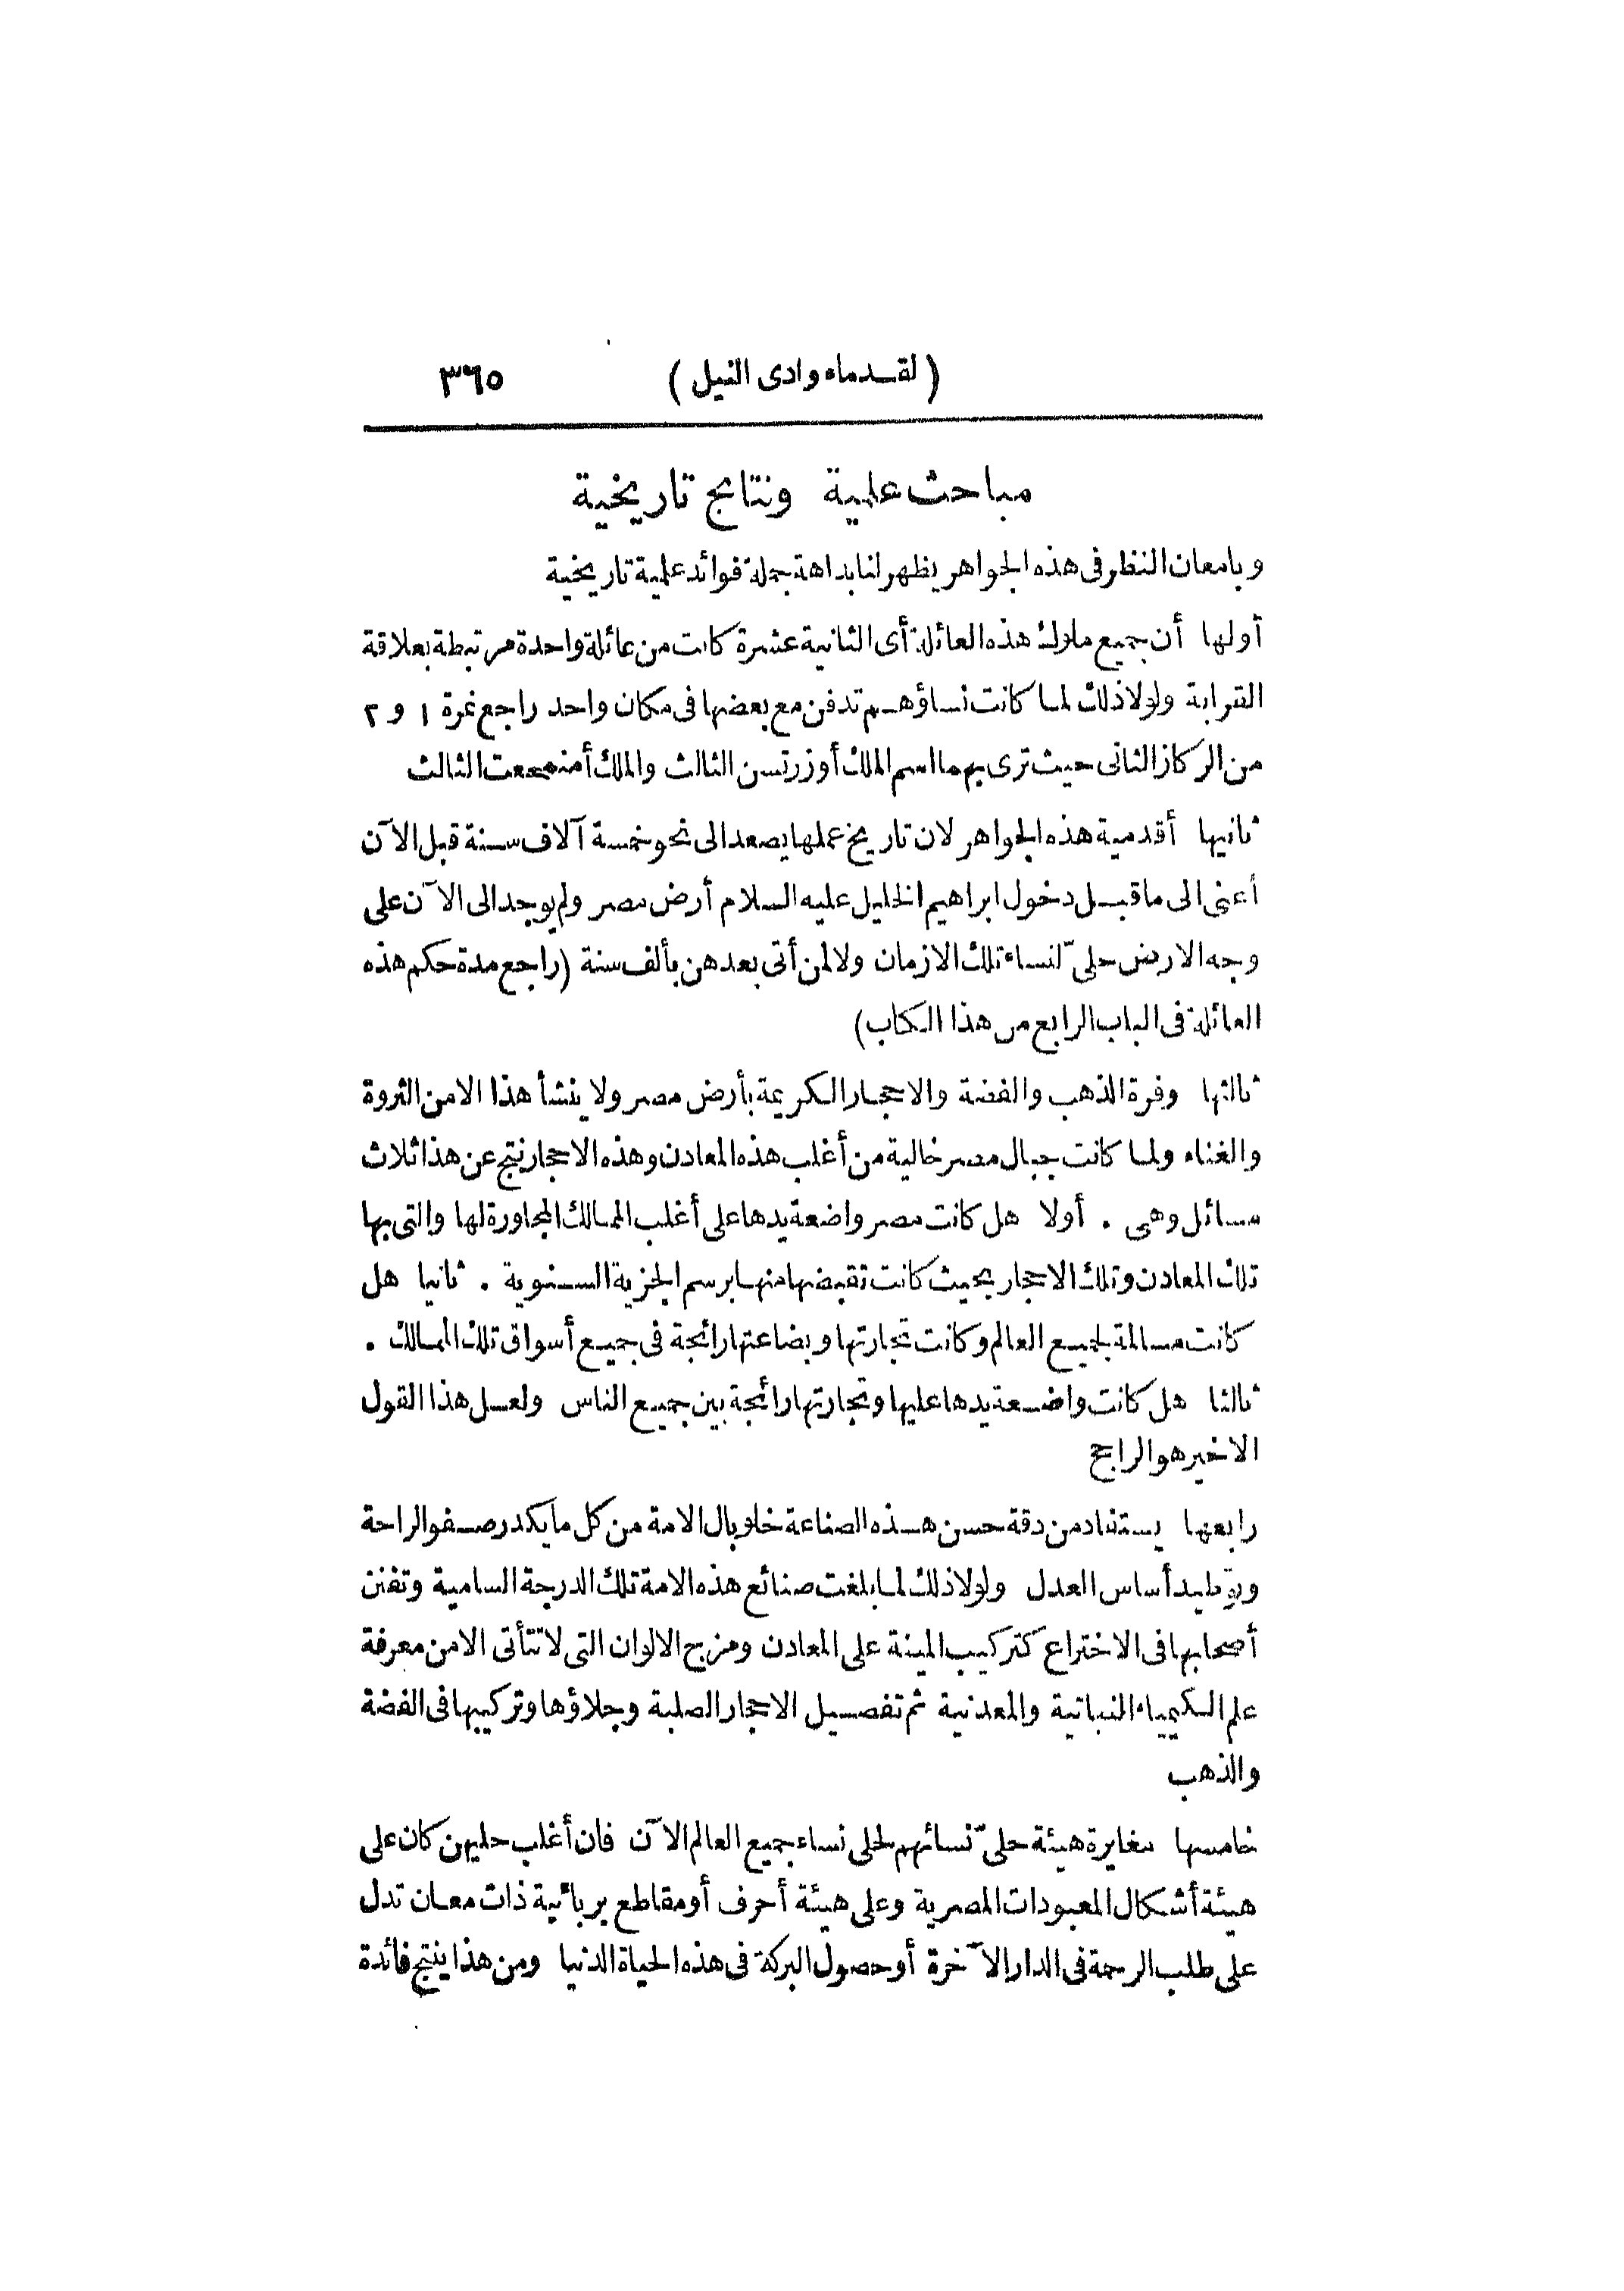 (لقدماء وادى النيل) ٣٦٥
مباحث علمية ونتايج تاريخية
وبامعان النظر فى هذه الجواهر يظهر لنا بداهة جملة فوائد علمية تاريخية
أولها أن جميع ملوك هذه العائلة أى الثانية عشرة كانت من عائلة واحدة مرتبطة بعلاقة
القرابة ولولا ذلك لما كانت نساؤهم تدفن مع بعضها فى مكان واحد راجع نمرة ١ و ٢
من الركاز الثانى حيث ترى بهما اسم الملك أوزرتسن الثالث والملك أمنمحعت الثالث
ثانيها أقدمية هذه الجواهر لان تاريخ عملها يصعد الى نحو خمسة آلاف سنة قبل الآن
أعنى الى ما قبل دخول ابراهيم الخليل عليه السلام أرض مصر ولم يوجد الى الآن على
وجه الارض حلىّ لنساء تلك الازمان ولا لمن أتى بعدهن بألف سنة (راجع مدة حكم هذه
العائلة فى الباب الرابع من هذا الكتاب)
ثالثها وفرة الذهب والفضة والاحجار الكريمة بأرض مصر ولا ينشأ هذا الا من الثروة
والغناء ولما كانت جبال مصر خالية من أغلب هذه المعادن وهذه الاحجار نتج عن هذا ثلاث
مسائل وهى . أولا هل كانت مصر واضعة يدها على أغلب الممالك المجاورة لها والتى بها
تلك المعادن وتلك الاحجار بحيث كانت تقبضها منها برسم الجزية السنوية . ثانيا هل
كانت مسالمة لجميع العالم وكانت تجارتها وبضاعتها رائجة فى جميع أسواق تلك الممالك .
ثالثا هل كانت واضعة يدها عليها وتجارتها رائجة بين جميع الناس ولعل هذا القول
الاخير هو الراجح
رابعها يستفاد من دقة حسن هذه الصناعة خلو بال الامة من كل ما يكدر صفو الراحة
وتوطيد أساس العدل ولولا ذلك لما بلغت صنائع هذه الامة تلك الدرجة السامية وتفنن
أصحابها فى الاختراع كتركيب المينة على المعادن ومزج الالوان التى لا تتأتى الا من معرفة
علم الكيمياء النباتية والمعدنية ثم تفصيل الاحجار الصلبة وجلاؤها وتركيبها فى الفضة
والذهب
خامسها مغايرة هيئة حلىّ نسائهم لحلى نساء جميع العالم الآن فان أغلب حليهن كان على
هيئة أشكال المعبودات المصرية وعلى هيئة أحرف أو مقاطع بربائية ذات معان تدل
على طلب الرحمة فى الدار الآخرة أو حصول البركة فى هذه الحياة الدنيا ومن هذا ينتج فائدة